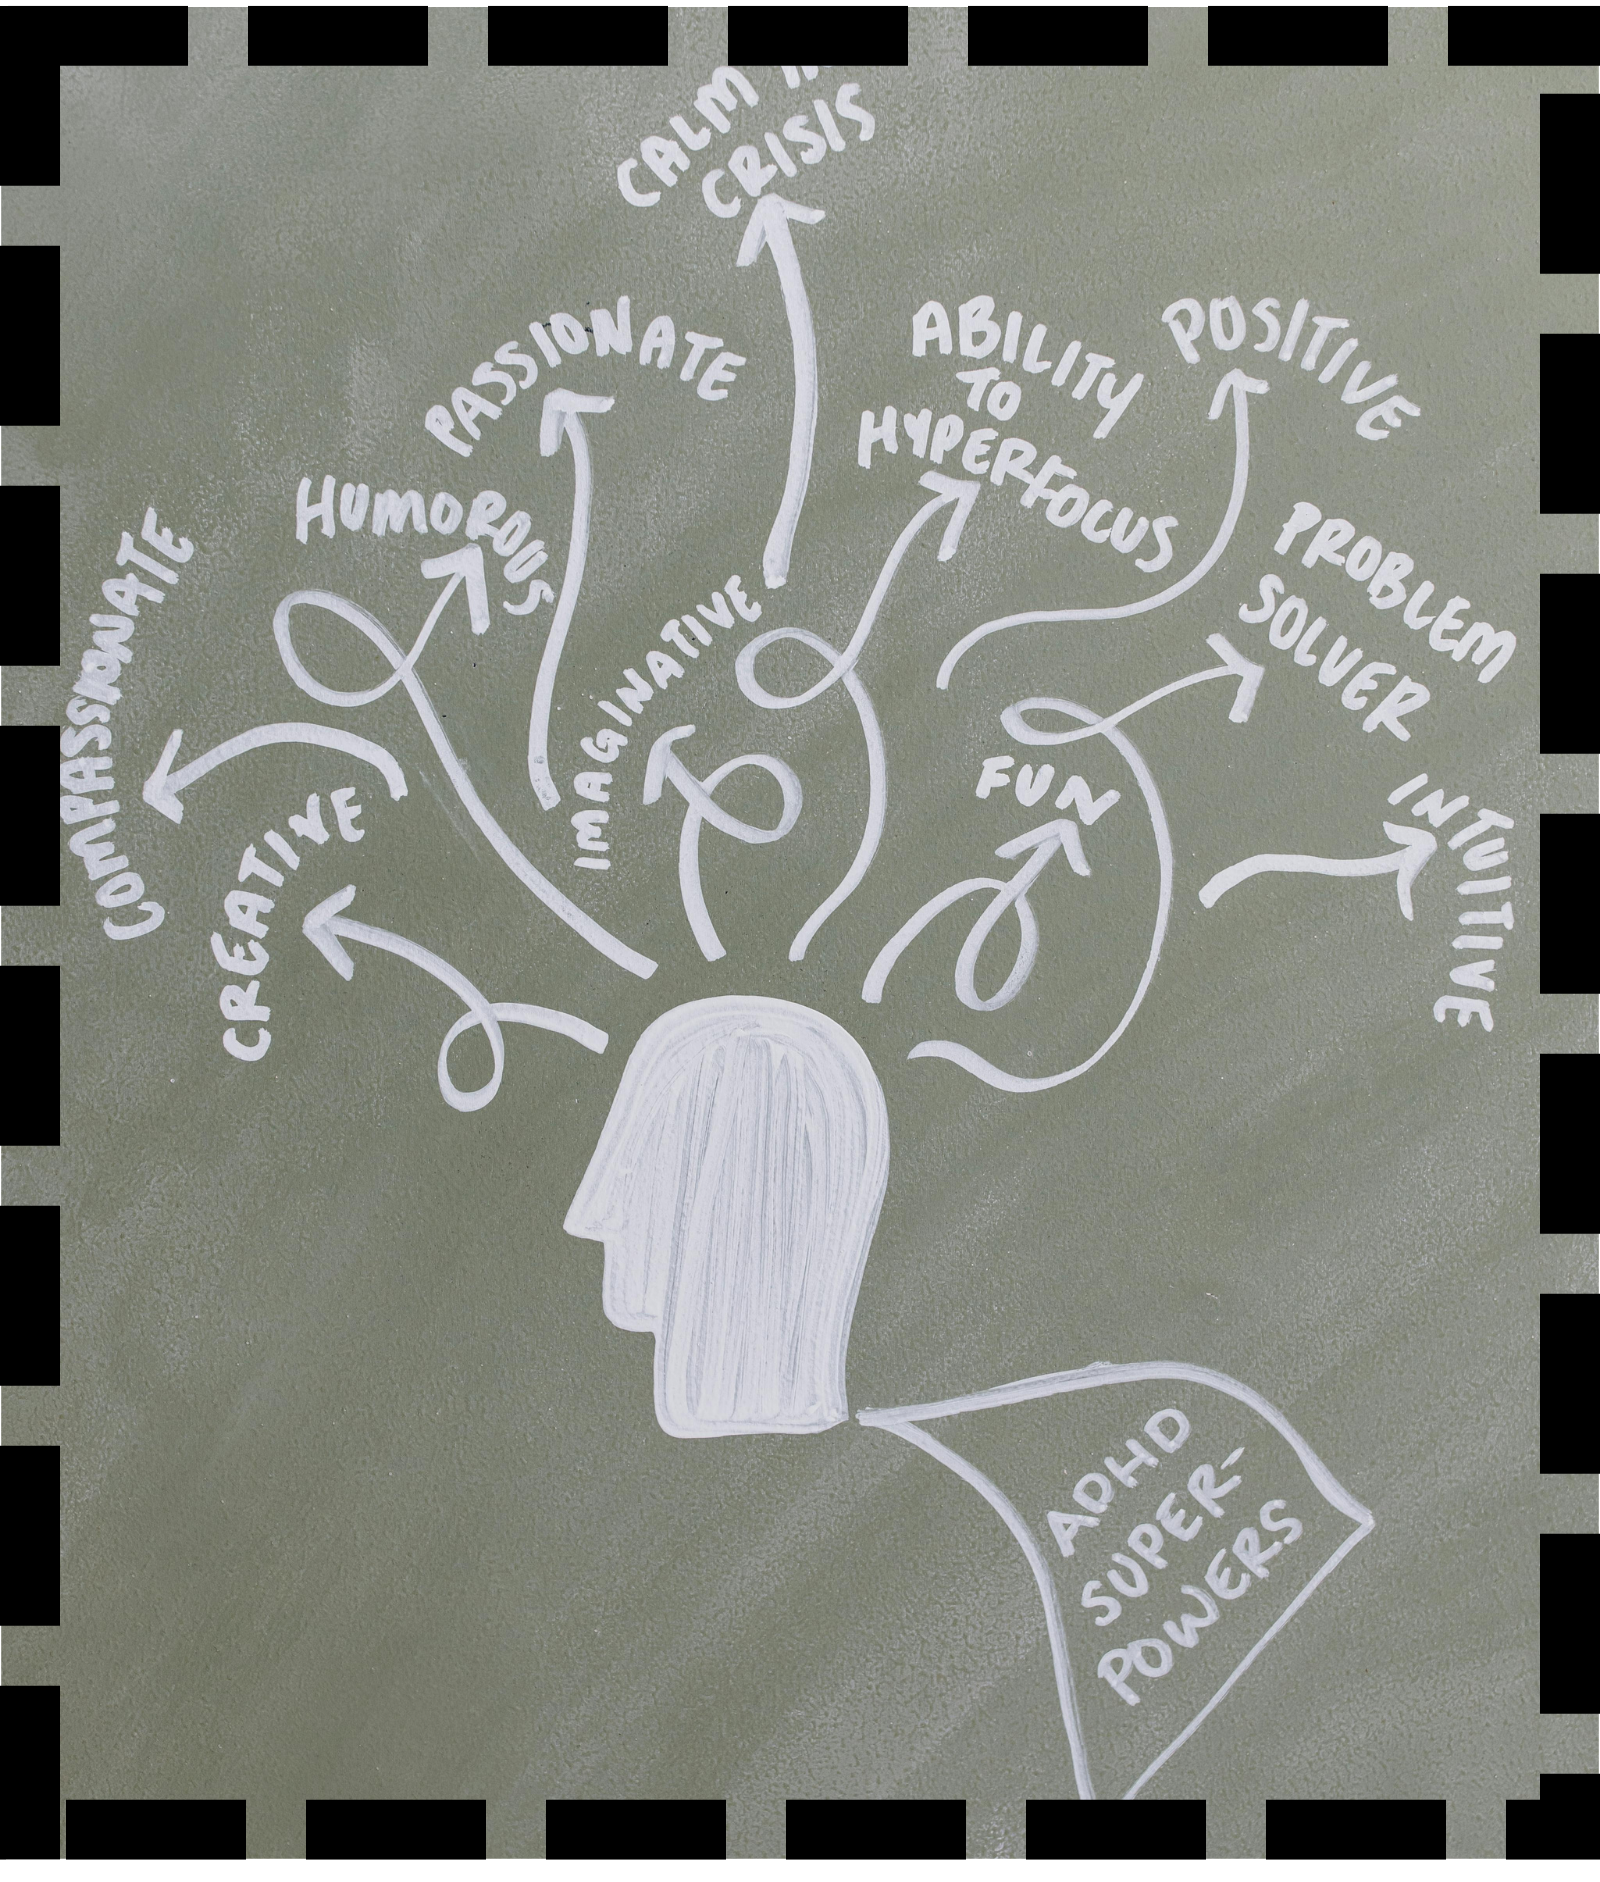 CALM IN
CRISIS
PASSIONATE
ABILITY
TO
HYPERFOCUS
POSITIVE
HUMOROUS
COMPASSIONATE
IMAGINATIVE
PROBLEM
SOLVER
CREATIVE
FUN
INTUITIVE
ADHD
SUPER-
POWERS